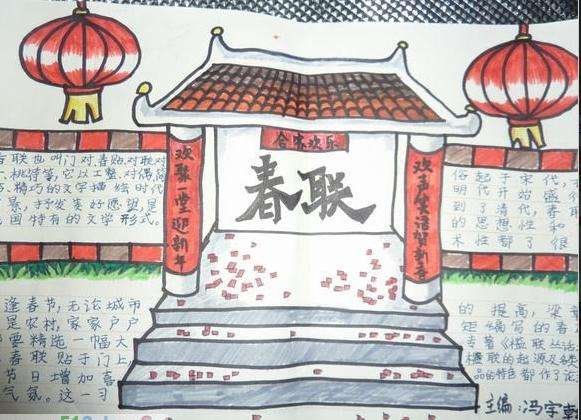 合家欢乐
欢聚一堂迎新年
春联
欢声笑语贺新春
联也叫门对、春贴、对联、对
、桃符等,它以工整、对偶、简
、精巧的文字描绘时代
景,抒发美好愿望,是
国特有的文学形式。
逢春节,无论城市
是农村,家家户户
要精选一幅大
春联贴于门上
节日增加喜
气氛。这一习
俗起于宋代,
明代开始盛
到了清代,春联
的思想性和
术性都了很
的提高,梁章
矩编写的春
专著《楹联丛话
楹联的起源及各类
品的特色都作了论
主编:冯宇